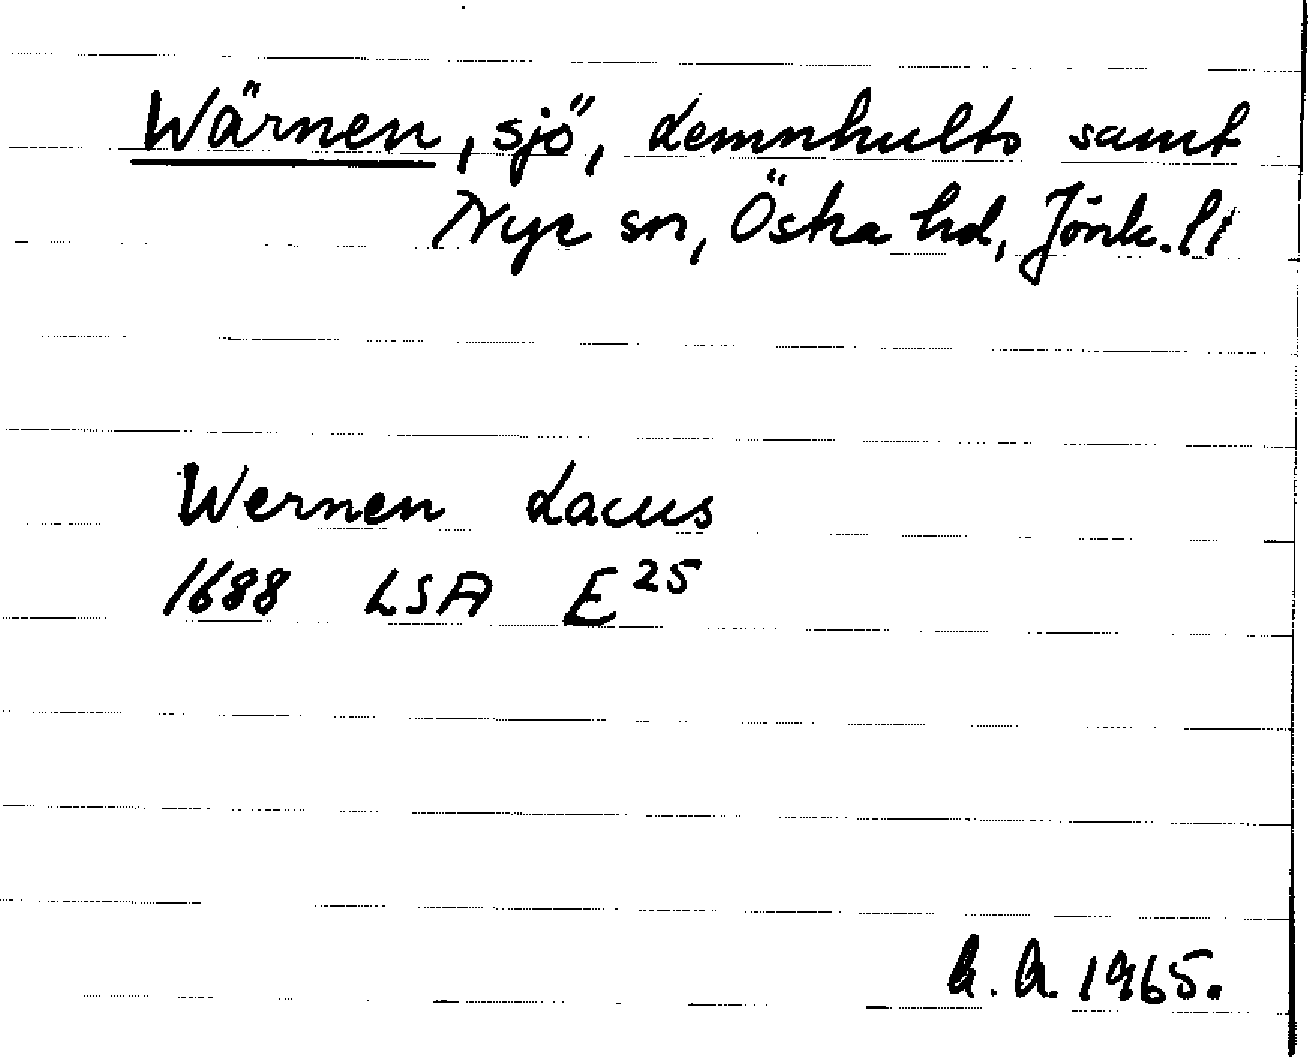 Wärnen, sjö, Lemnhults samt
Nye sn, Östra hd, Jönk. li
Wernen Lacus
1688 LSA E 25
1965.